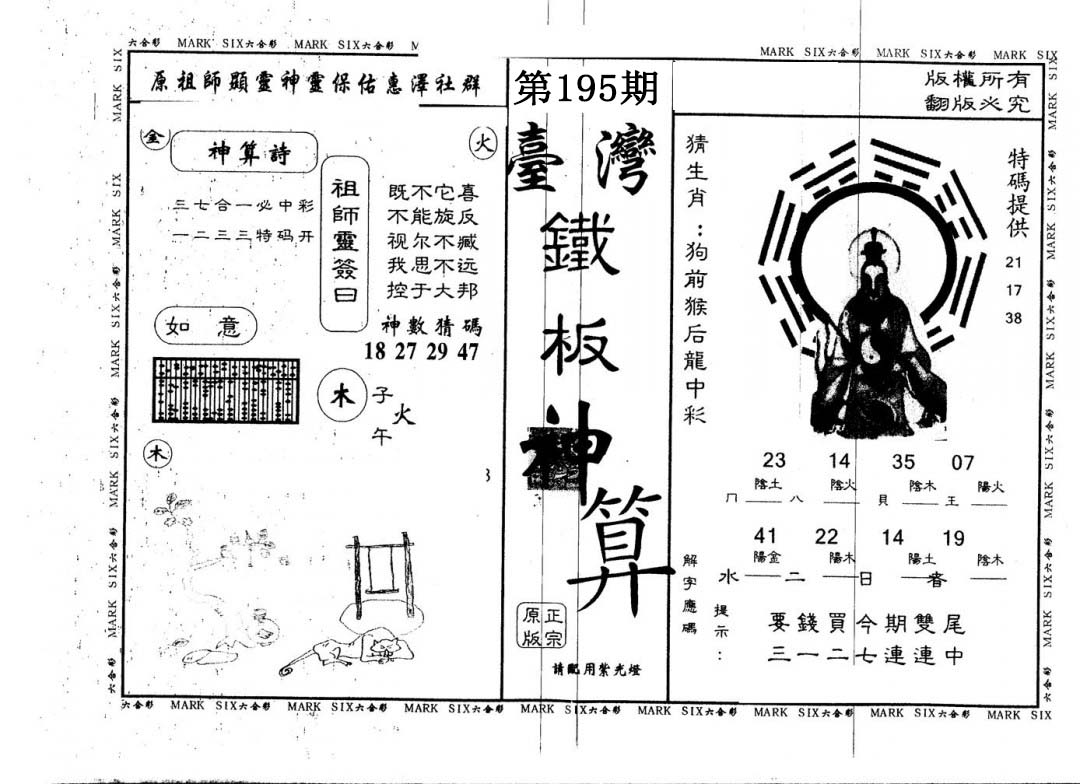 六合彩 MARK SIX六合彩 MARK SIX六合彩 M
MARK SIX六合彩 MARK SIX六合彩 MARK SIX
原祖師顯靈神靈保佑惠澤社群
第195期
版權所有
翻版必究
金
神算詩
火
三七合一必中彩
一二三三特码开
祖師靈簽曰
既不它喜
不能旋反
视尔不臧
我思不远
控于大邦
神數猜碼
18 27 29 47
如意
木
子
火
午
木
臺灣
鐵
板
神
算
原版
正宗
請配用紫光燈
猜生肖：狗前猴后龍中彩
特碼提供
21
17
38
23 14 35 07
陰土 陰火 陰木 陽火
冂 八 貝 王
41 22 14 19
陽金 陽木 陽土 陰木
水 二 日 春
解字應碼
提示：
要錢買今期雙尾
三一二七連連中
六合彩 MARK SIX六合彩 MARK SIX六合彩 MARK SIX六合彩 MARK SIX六合彩 MARK SIX六合彩 MARK SIX六合彩 MARK SIX六合彩 MARK SIX